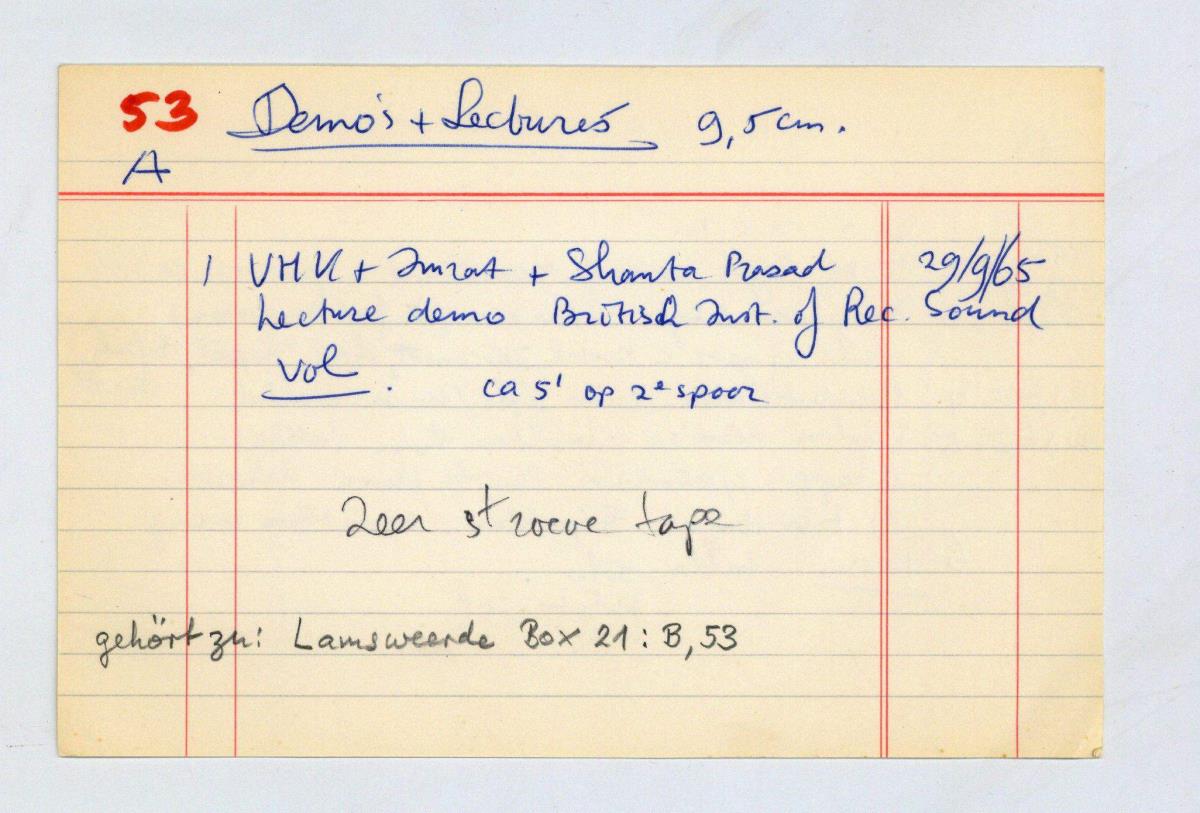 53 Demo's + Lectures 9,5 cm.
A
1 VHK + Imrat + Shanta Prasad 29/9/65
Lecture demo British Inst. of Rec. Sound
Vol. ca 5' op 2e spoor
Zeer stroeve tape
gehört zu: Lamsweerde Box 21: B, 53